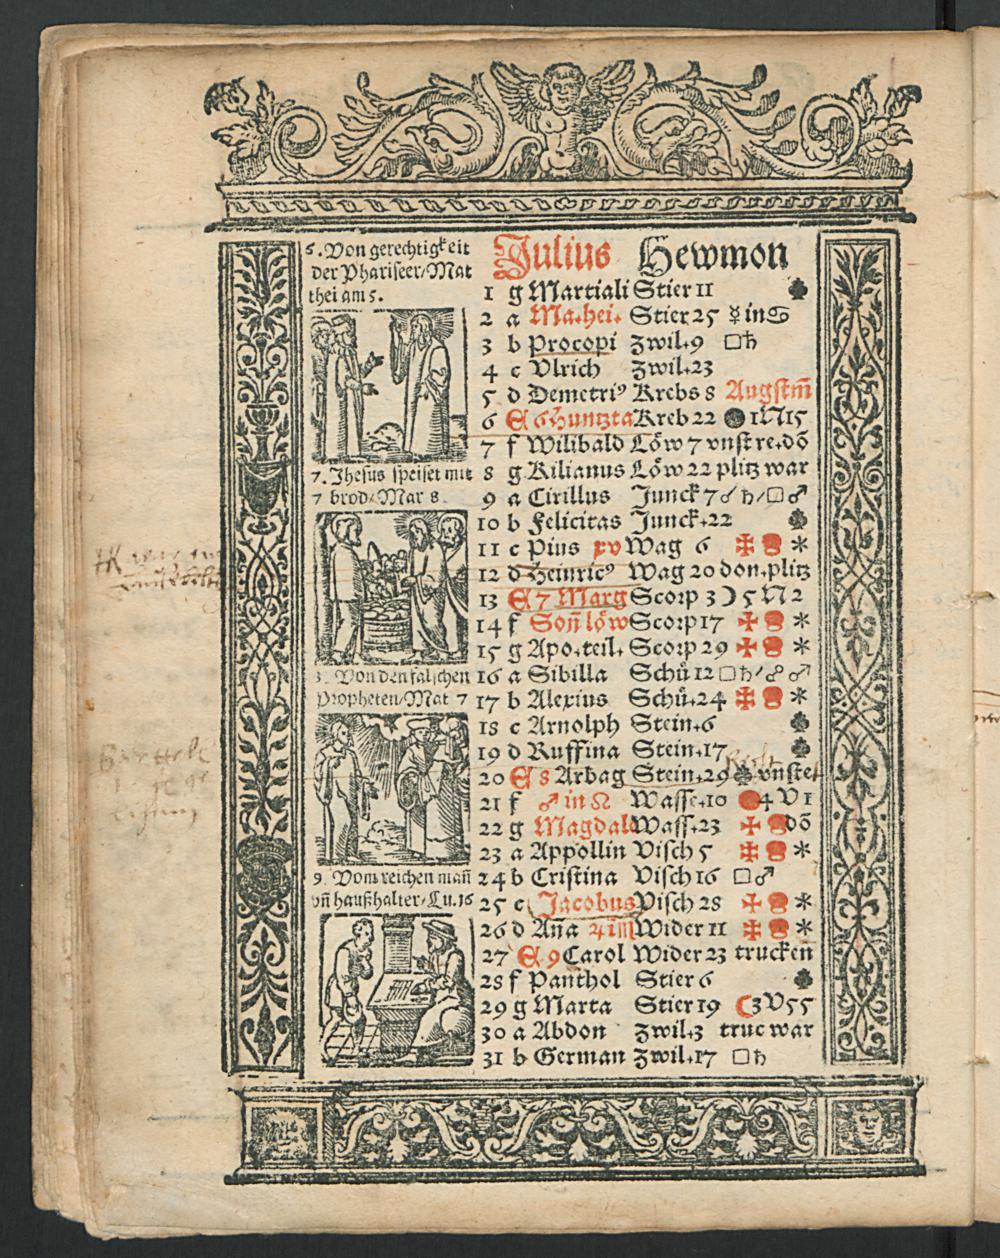 5. Von gerechtigkeit
der Phariseer/Mat
thei am 5.
7. Jhesus speiset mit
7 brod/Mar 8.
Von den falschen
Propheten/Mat 7
9. Vom reichen mañ
vñ haußhalter/Lu. 16
Julius Hewmon
1 g Martiali Stier 11 ♣
2 a Ma.hei. Stier 25 ☿ in ♋
3 b Procopi Zwil.9 □ ♄
4 c Vlrich Zwil.23
5 d Demetri⁹ Krebs 8 Augstm̃
6 E 6 Huntzta Kreb 22 ● 1 N 15
7 f Wilibald Löw 7 vnst re.dō
8 g Kilianus Löw 22 plitz war
9 a Cirillus Junck 7 ☌ ♄/□ ♂
10 b Felicitas Junck.22 ♣
11 c Pius xv Wag 6 *
12 d Heinric⁹ Wag 20 don.plitz
13 E 7 Marg Scorp 3 ☽ 5 N 2
14 f Soñ löw Scorp 17 ✠ *
15 g Apo.teil. Scorp 29 ✠ *
16 a Sibilla Schü 12 □ ♄/☍ ♂
17 b Alexius Schü.24 *
18 c Arnolph Stein.6 ♣
19 d Ruffina Stein.17 ♣
20 E 8 Arbag Stein.29 ♣ vnstet
21 f ♂ in ♌ Wasse.10 ● 4 V 1
22 g Magdal Wass.23 ✠ dō
23 a Appollin Visch 5 *
24 b Cristina Visch 16 □ ♂
25 c Jacobus Visch 28 ✠ *
26 d Aña Wider 11 *
27 E 9 Carol Wider 23 trucken
28 f Panthol Stier 6 ♣
29 g Marta Stier 19 ☾ 3 V 55
30 a Abdon Zwil.3 truc war
31 b German Zwil.17 □ ♄